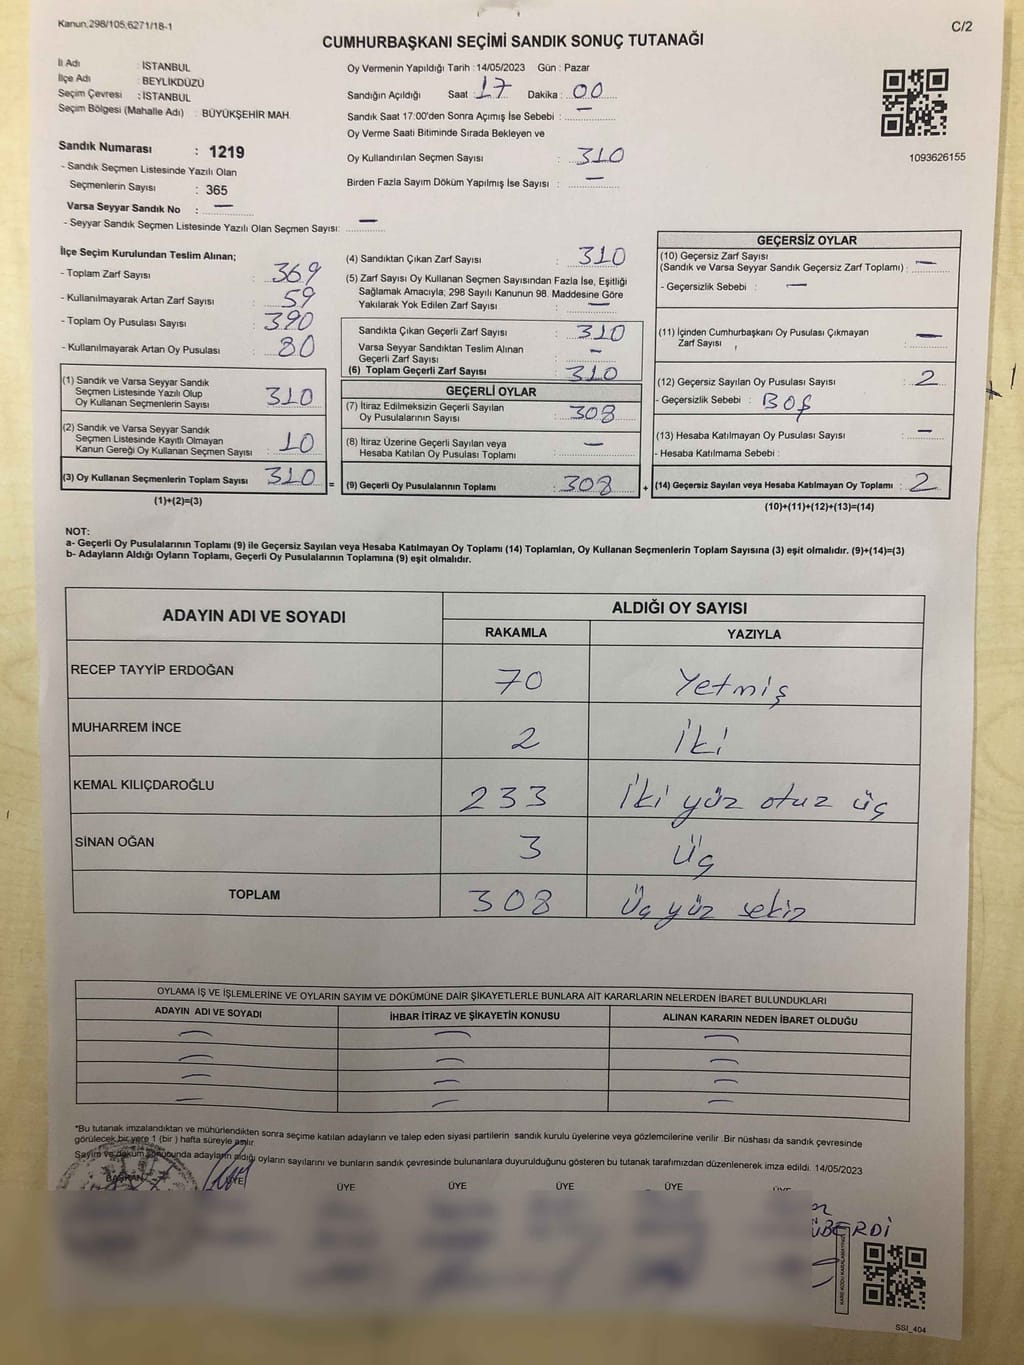 Kanun;298/105;6271/18-1
C/2
CUMHURBAŞKANI SEÇİMİ SANDIK SONUÇ TUTANAĞI
İl Adı : İSTANBUL
İlçe Adı : BEYLİKDÜZÜ
Seçim Çevresi : İSTANBUL
Seçim Bölgesi (Mahalle Adı) : BÜYÜKŞEHİR MAH.
Sandık Numarası : 1219
- Sandık Seçmen Listesinde Yazılı Olan
Seçmenlerin Sayısı : 365
Varsa Seyyar Sandık No : —
- Seyyar Sandık Seçmen Listesinde Yazılı Olan Seçmen Sayısı: —
Oy Vermenin Yapıldığı Tarih : 14/05/2023 Gün : Pazar
Sandığın Açıldığı Saat : 17 Dakika : 00
Sandık Saat 17:00'den Sonra Açımış İse Sebebi : —
Oy Verme Saati Bitiminde Sırada Bekleyen ve
Oy Kullandırılan Seçmen Sayısı : 310
Birden Fazla Sayım Döküm Yapılmış İse Sayısı : —
1093626155
İlçe Seçim Kurulundan Teslim Alınan;
- Toplam Zarf Sayısı : 369
- Kullanılmayarak Artan Zarf Sayısı : 59
- Toplam Oy Pusulası Sayısı : 390
- Kullanılmayarak Artan Oy Pusulası : 80
(1) Sandık ve Varsa Seyyar Sandık
Seçmen Listesinde Yazılı Olup
Oy Kullanan Seçmenlerin Sayısı : 310
(2) Sandık ve Varsa Seyyar Sandık
Seçmen Listesinde Kayıtlı Olmayan
Kanun Gereği Oy Kullanan Seçmen Sayısı : 10
(3) Oy Kullanan Seçmenlerin Toplam Sayısı : 310 =
(1)+(2)=(3)
(4) Sandıktan Çıkan Zarf Sayısı : 310
(5) Zarf Sayısı Oy Kullanan Seçmen Sayısından Fazla İse, Eşitliği
Sağlamak Amacıyla; 298 Sayılı Kanunun 98. Maddesine Göre
Yakılarak Yok Edilen Zarf Sayısı : —
Sandıkta Çıkan Geçerli Zarf Sayısı : 310
Varsa Seyyar Sandıktan Teslim Alınan
Geçerli Zarf Sayısı : —
(6) Toplam Geçerli Zarf Sayısı : 310
GEÇERLİ OYLAR
(7) İtiraz Edilmeksizin Geçerli Sayılan
Oy Pusulalarının Sayısı : 308
(8) İtiraz Üzerine Geçerli Sayılan veya
Hesaba Katılan Oy Pusulası Toplamı : —
(9) Geçerli Oy Pusulalarının Toplamı : 308 +
GEÇERSİZ OYLAR
(10) Geçersiz Zarf Sayısı
(Sandık ve Varsa Seyyar Sandık Geçersiz Zarf Toplamı) : —
- Geçersizlik Sebebi : —
(11) İçinden Cumhurbaşkanı Oy Pusulası Çıkmayan
Zarf Sayısı : —
(12) Geçersiz Sayılan Oy Pusulası Sayısı : 2
- Geçersizlik Sebebi : BOŞ
(13) Hesaba Katılmayan Oy Pusulası Sayısı : —
- Hesaba Katılmama Sebebi :
(14) Geçersiz Sayılan veya Hesaba Katılmayan Oy Toplamı : 2
(10)+(11)+(12)+(13)=(14)
NOT:
a- Geçerli Oy Pusulalarının Toplamı (9) ile Geçersiz Sayılan veya Hesaba Katılmayan Oy Toplamı (14) Toplamları, Oy Kullanan Seçmenlerin Toplam Sayısına (3) eşit olmalıdır. (9)+(14)=(3)
b- Adayların Aldığı Oyların Toplamı, Geçerli Oy Pusulalarının Toplamına (9) eşit olmalıdır.
ADAYIN ADI VE SOYADI ALDIĞI OY SAYISI
RAKAMLA YAZIYLA
RECEP TAYYİP ERDOĞAN 70 Yetmiş
MUHARREM İNCE 2 İki
KEMAL KILIÇDAROĞLU 233 İki yüz otuz üç
SİNAN OĞAN 3 Üç
TOPLAM 308 Üç yüz sekiz
OYLAMA İŞ VE İŞLEMLERİNE VE OYLARIN SAYIM VE DÖKÜMÜNE DAİR ŞİKAYETLERLE BUNLARA AİT KARARLARIN NELERDEN İBARET BULUNDUKLARI
ADAYIN ADI VE SOYADI İHBAR İTİRAZ VE ŞİKAYETİN KONUSU ALINAN KARARIN NEDEN İBARET OLDUĞU
— — —
— — —
— — —
— — —
*Bu tutanak imzalandıktan ve mühürlendikten sonra seçime katılan adayların ve talep eden siyasi partilerin sandık kurulu üyelerine veya gözlemcilerine verilir .Bir nüshası da sandık çevresinde
görülecek bir yere 1 (bir ) hafta süreyle asılır.
Sayım ve döküm sonucunda adayların aldığı oyların sayılarını ve bunların sandık çevresinde bulunanlara duyurulduğunu gösteren bu tutanak tarafımızdan düzenlenerek imza edildi. 14/05/2023
BAŞKAN ÜYE ÜYE ÜYE ÜYE ÜYE ÜYE
SSI_404